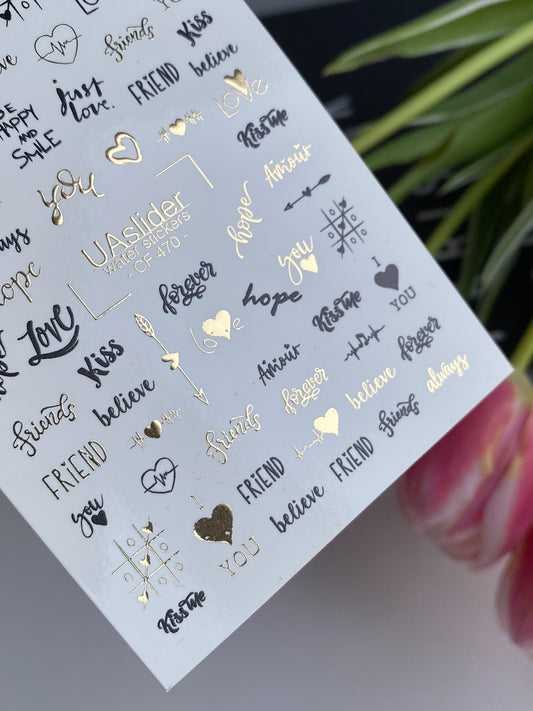 Kiss
friends
believe
just
love.
FRIEND
BE
HAPPY
AND
SMILE
LOVE
Kiss me
you
Amour
UAslider
water stickers
- CF 470 -
hope
always
you
hope
forever
I
YOU
love
hope
Kiss me
Love
Kiss
forever
Amour
believe
forever
believe
always
friends
friends
friends
FRIEND
FRIEND
FRIEND
you
believe
I
YOU
Kiss me